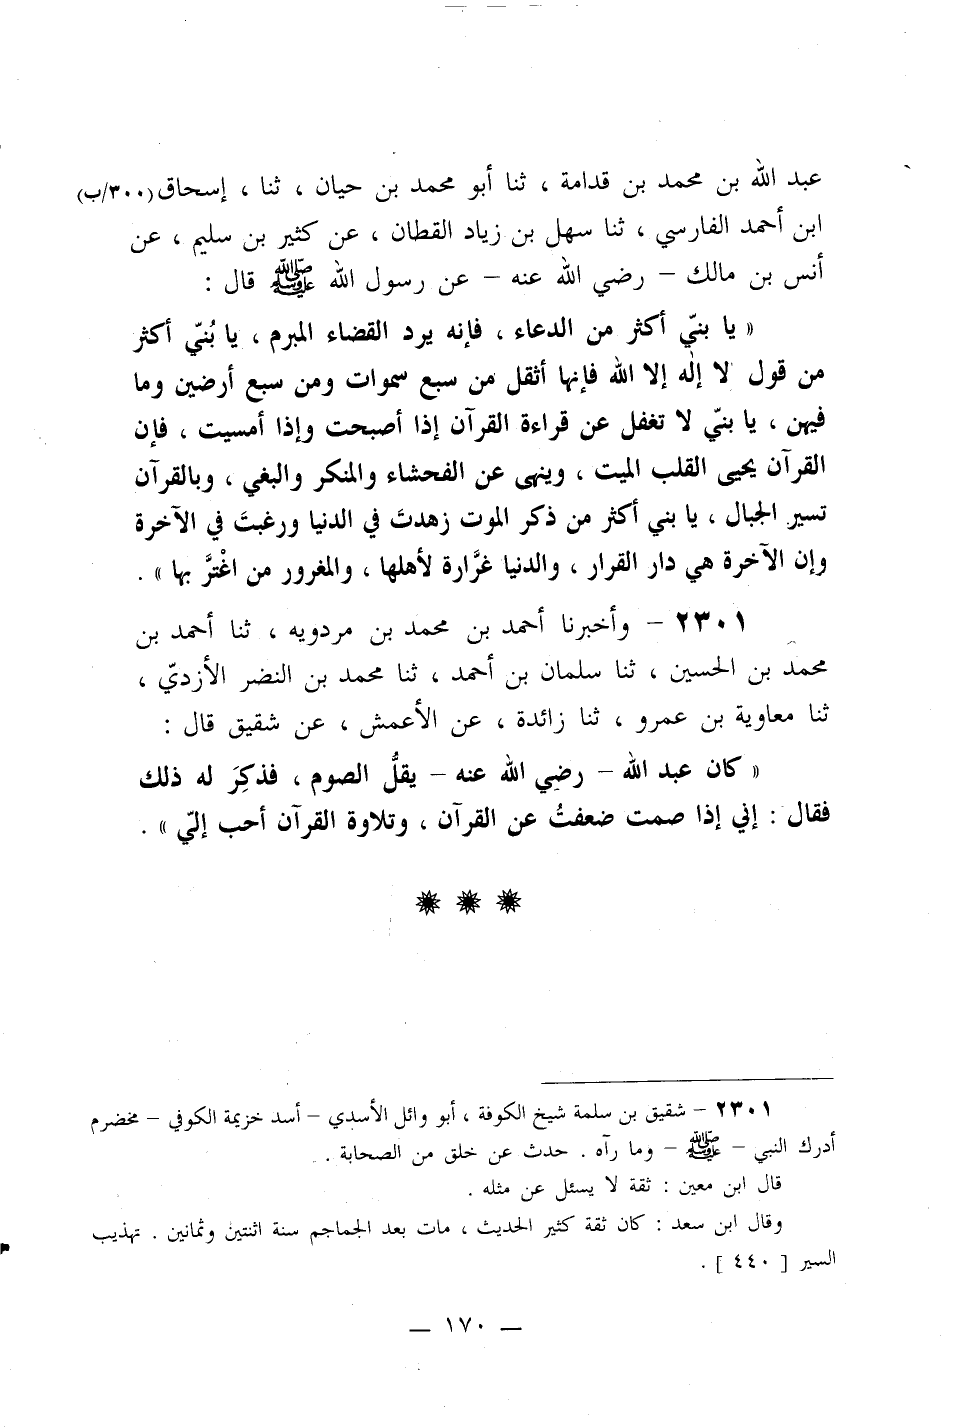 عبد الله بن محمد بن قدامة ، ثنا أبو محمد بن حيان ، ثنا ، إسحاق (٣٠٠/ب)
ابن أحمد الفارسي ، ثنا سهل بن زياد القطان ، عن كثير بن سليم ، عن
أنس بن مالك – رضي الله عنه – عن رسول الله ﷺ قال :
« يا بنيّ أكثر من الدعاء ، فإنه يرد القضاء المبرم ، يا بُنيّ أكثر
من قول لا إله إلا الله فإنها أثقل من سبع سموات ومن سبع أرضين وما
فيهن ، يا بنيّ لا تغفل عن قراءة القرآن إذا أصبحت وإذا أمسيت ، فإن
القرآن يحيى القلب الميت ، وينهى عن الفحشاء والمنكر والبغي ، وبالقرآن
تسير الجبال ، يا بني أكثر من ذكر الموت زهدتَ في الدنيا ورغبتَ في الآخرة
وإن الآخرة هي دار القرار ، والدنيا غرَّارة لأهلها ، والمغرور من اغْترَّ بها » .
٢٣٠١ – وأخبرنا أحمد بن محمد بن مردويه ، ثنا أحمد بن
محمد بن الحسين ، ثنا سلمان بن أحمد ، ثنا محمد بن النضر الأزديّ ،
ثنا معاوية بن عمرو ، ثنا زائدة ، عن الأعمش ، عن شقيق قال :
« كان عبد الله – رضي الله عنه – يقلُّ الصوم ، فذكِرَ له ذلك
فقال : إني إذا صمت ضعفتُ عن القرآن ، وتلاوة القرآن أحب إليّ » .
٢٣٠١ – شقيق بن سلمة شيخ الكوفة ، أبو وائل الأسدي – أسد خزيمة الكوفي – مخضرم
أدرك النبي – ﷺ – وما رآه . حدث عن خلق من الصحابة .
قال ابن معين : ثقة لا يسئل عن مثله .
وقال ابن سعد : كان ثقة كثير الحديث ، مات بعد الجماجم سنة اثنتين وثمانين . تهذيب
السير [ ٤٤٠ ] .
– ١٧٠ –